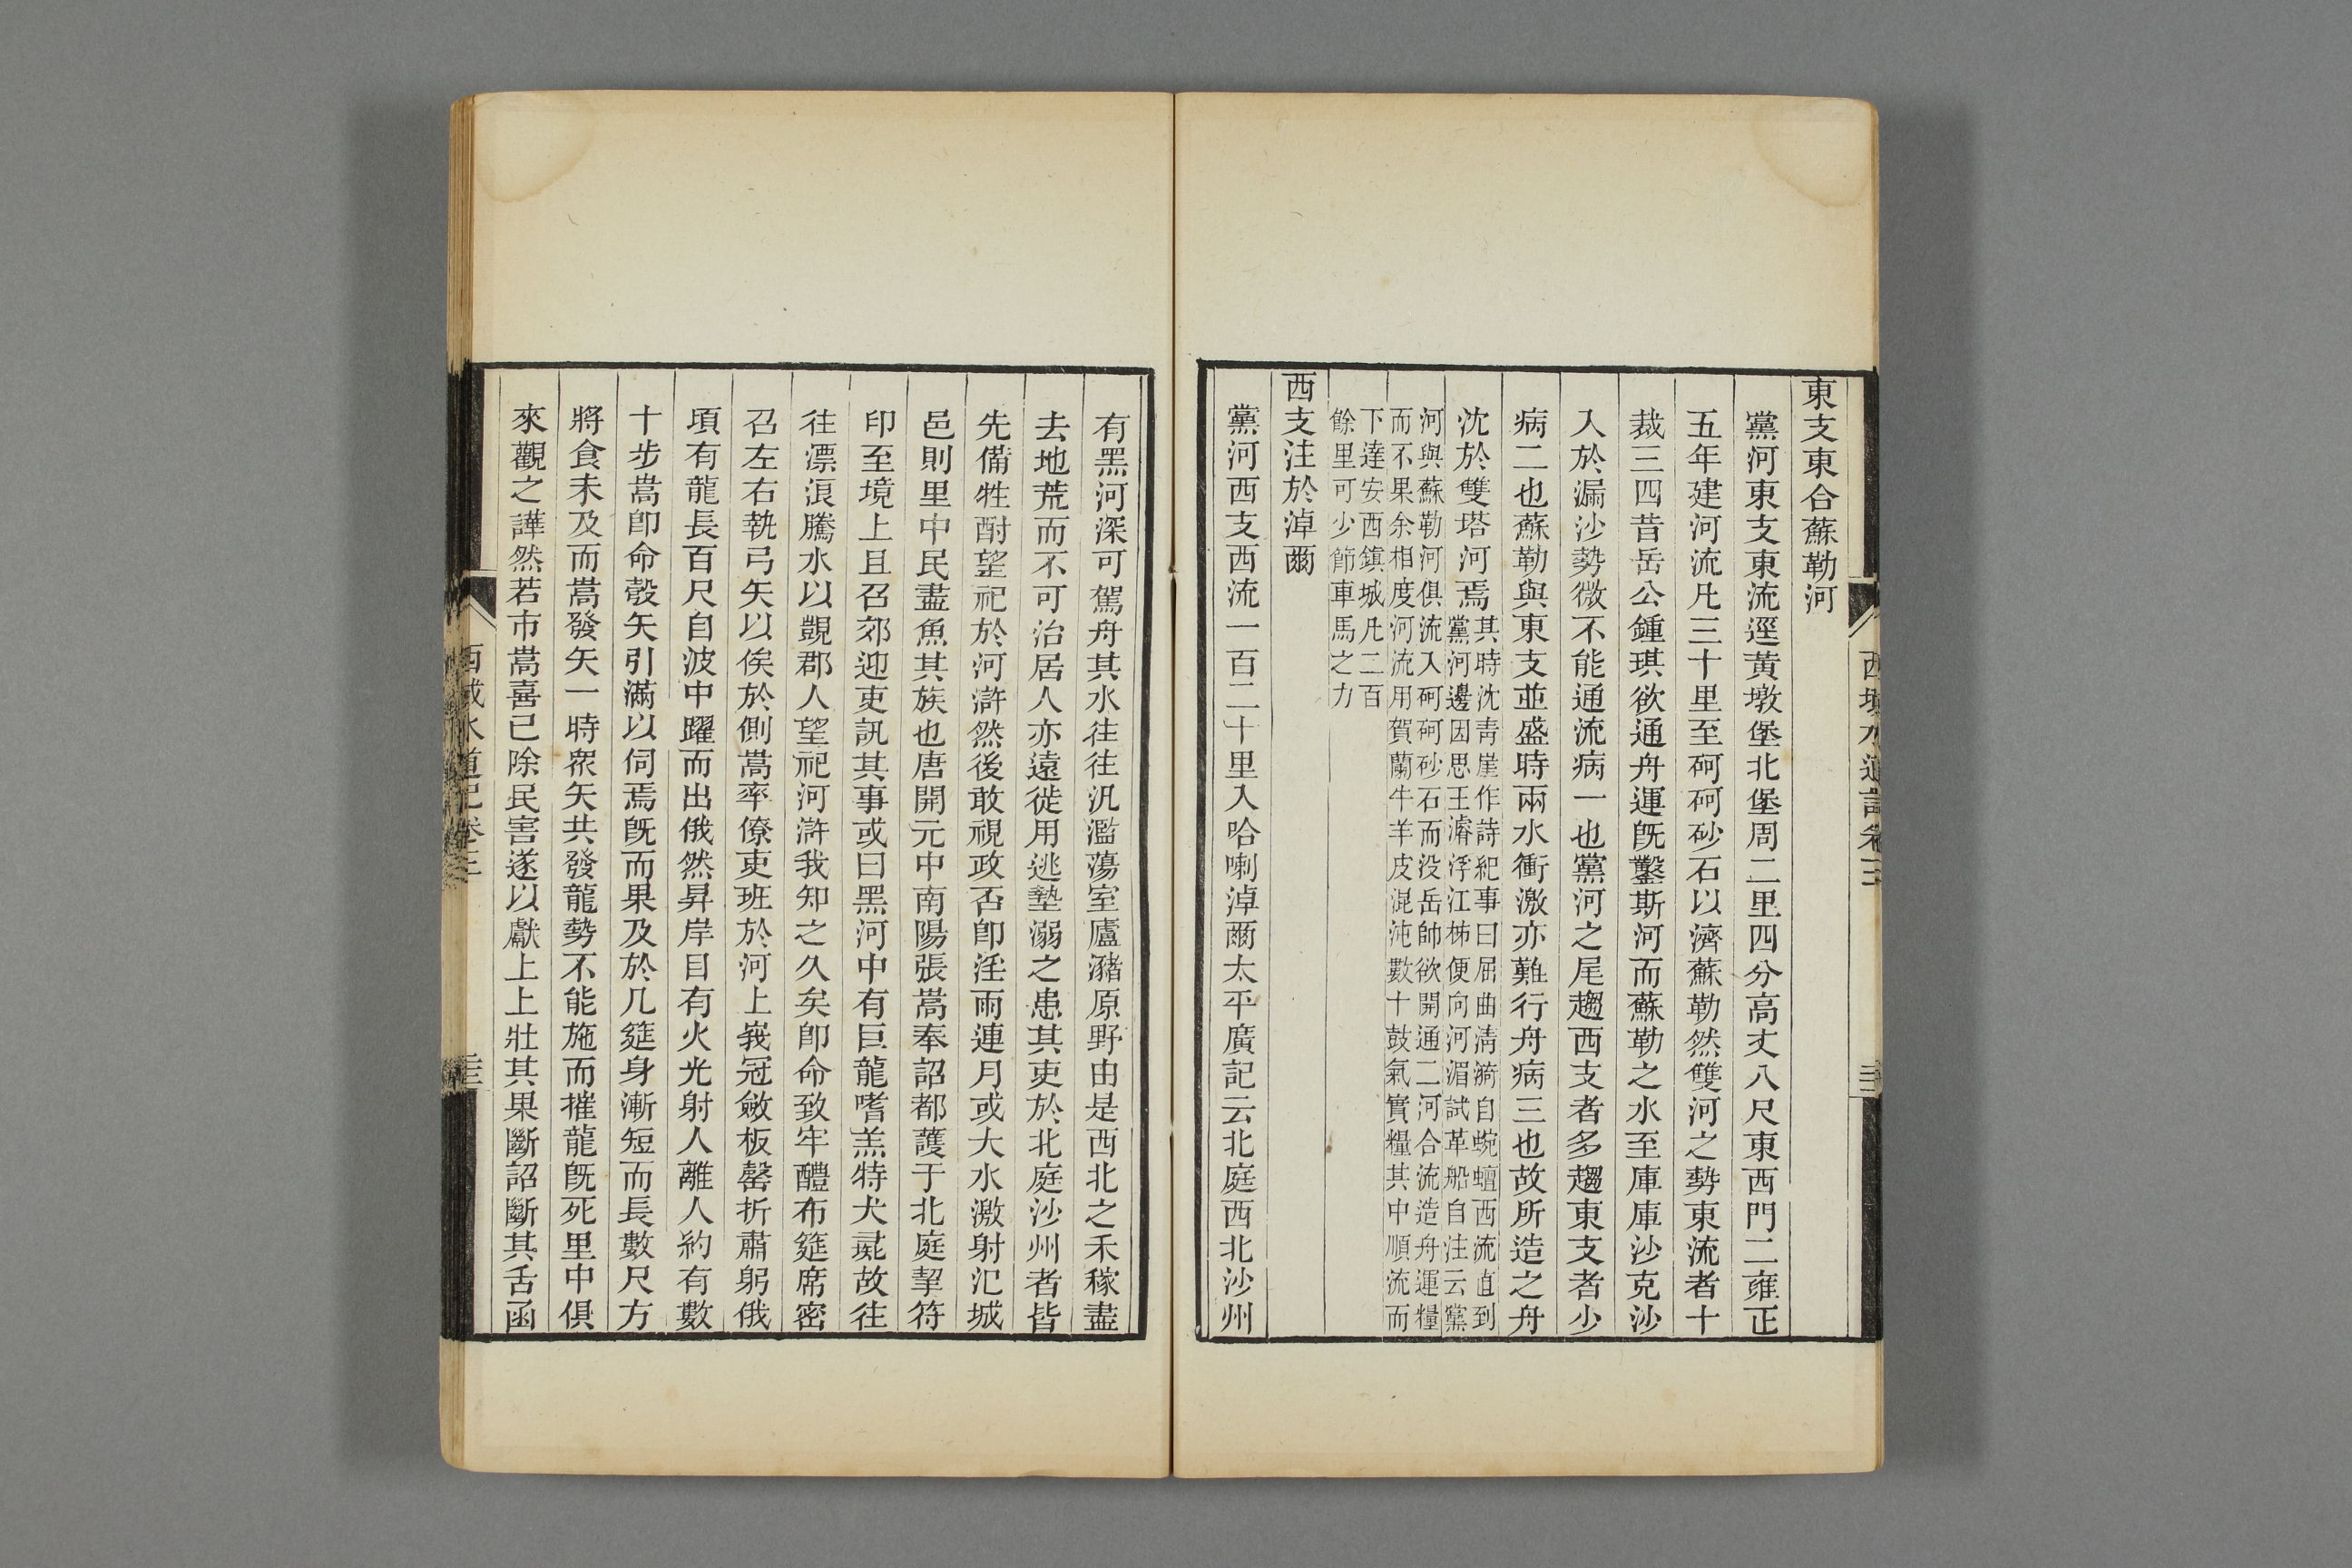 東支東合蘇勒河
黨河東支東流逕黃墩堡北堡周二里四分高丈八尺東西門二雍正
五年建河流凡三十里至砢砢砂石以濟蘇勒然雙河之勢東流者十
裁三四昔岳公鍾琪欲通舟運旣鑿斯河而蘇勒之水至庫庫沙克沙
入於漏沙勢微不能通流病一也黨河之尾趨西支者多趨東支者少
病二也蘇勒與東支並盛時兩水衝激亦難行舟病三也故所造之舟
沈於雙塔河焉
其時沈青崖作詩紀事曰屈曲淸漪自蜿蟺西流直到
黨河邊因思王濬浮江柹便向河湄試革船自注云黨
河與蘇勒河俱流入砢砢砂石而没岳帥欲開通二河合流造舟運糧
而不果余相度河流用賀蘭牛羊皮混沌數十鼓氣實糧其中順流而
下達安西鎮城凡二百
餘里可少節車馬之力
西支注於淖爾
黨河西支西流一百二十里入哈喇淖爾太平廣記云北庭西北沙州
西域水道記卷三
有黑河深可駕舟其水往往汎濫蕩室廬瀦原野由是西北之禾稼盡
去地荒而不可治居人亦遠徙用逃墊溺之患其吏於北庭沙州者皆
先備牲酎望祀於河滸然後敢視政否卽淫雨連月或大水激射氾城
邑則里中民盡魚其族也唐開元中南陽張嵩奉詔都護于北庭挈符
印至境上且召郊迎吏訊其事或曰黑河中有巨龍嗜羔特犬彘故往
往漂浪騰水以覬郡人望祀河滸我知之久矣卽命致牢醴布筵席密
召左右執弓矢以俟於側嵩率僚吏班於河上峩冠斂板罄折肅躬俄
頃有龍長百尺自波中躍而出俄然昇岸目有火光射人離人約有數
十步嵩卽命彀矢引滿以伺焉旣而果及於几筵身漸短而長數尺方
將食未及而嵩發矢一時衆矢共發龍勢不能施而摧龍旣死里中俱
來觀之譁然若市嵩喜已除民害遂以獻上上壯其果斷詔斷其舌函
西域水道記卷三